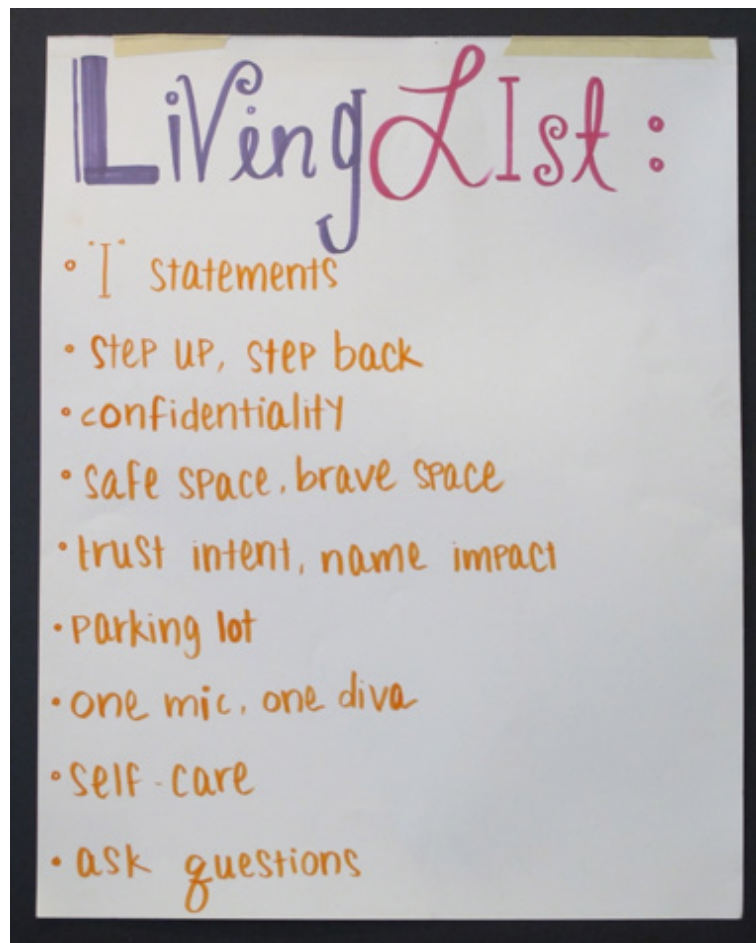 LiVing LIst:
• "I" statements
• step up, step back
• confidentiality
• safe space, brave space
• trust intent, name impact
• parking lot
• one mic, one diva
• self-care
• ask questions